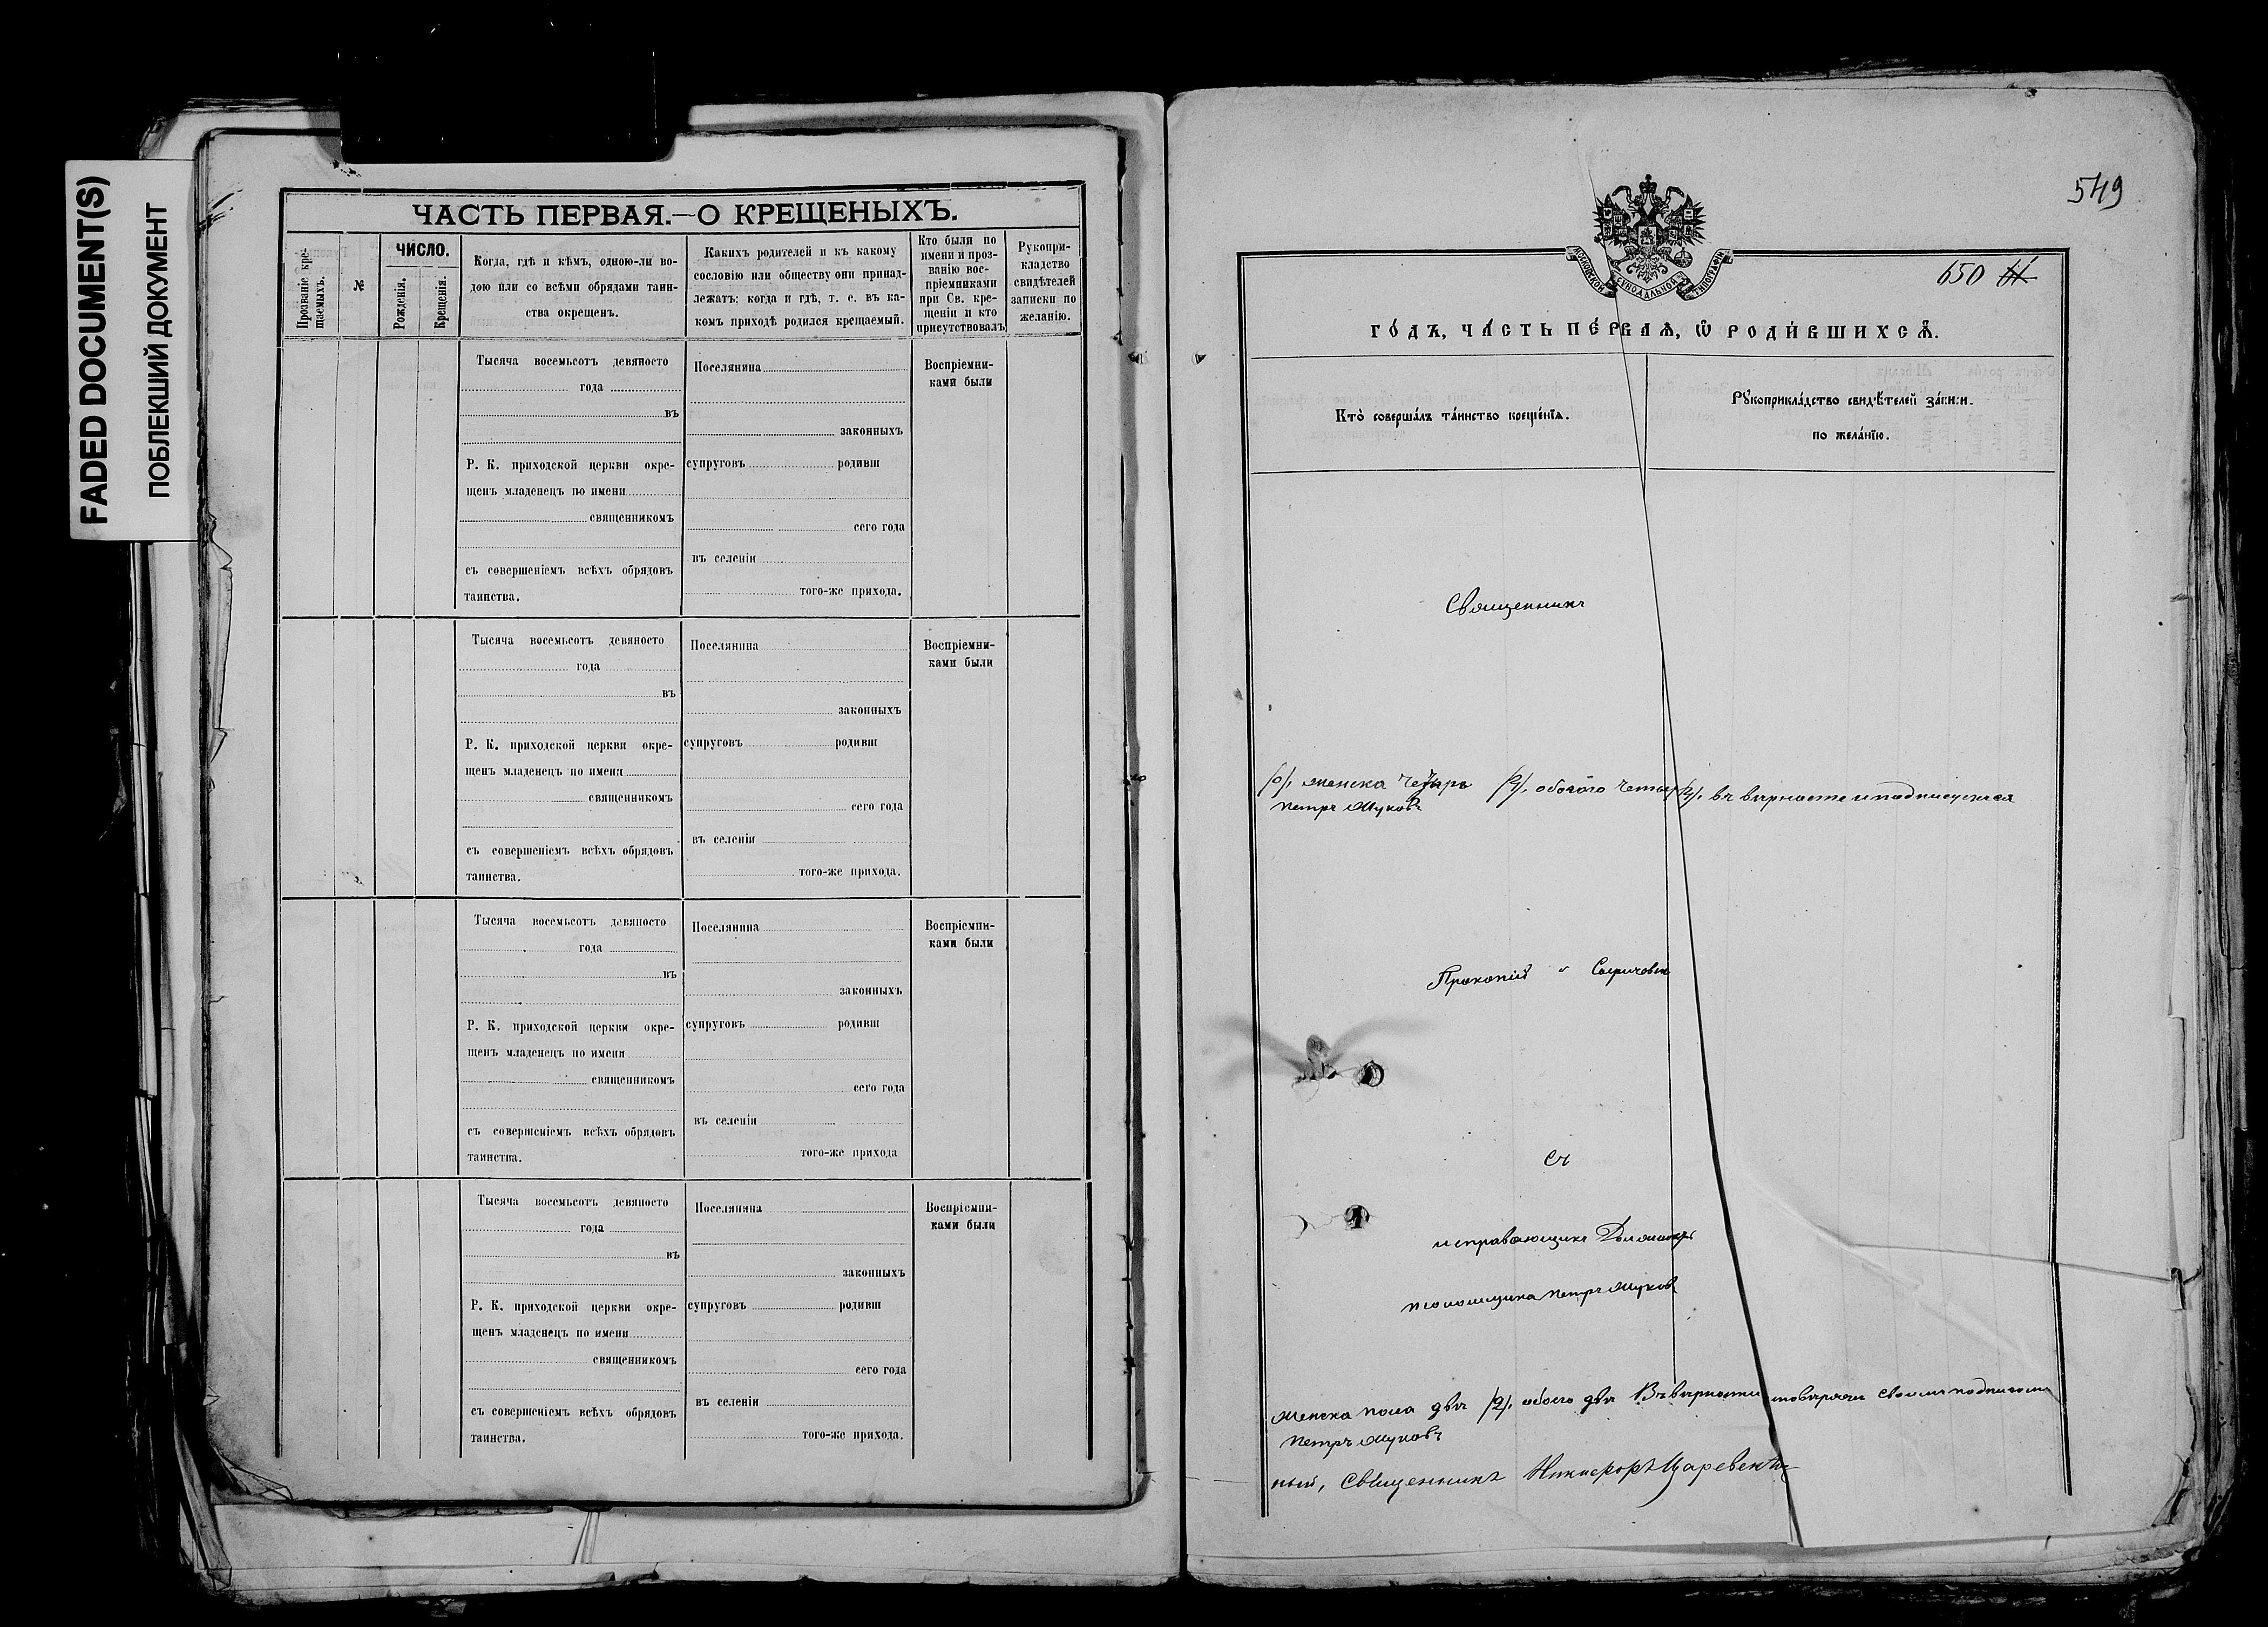 FADED DOCUMENT(S)
ПОБЛЕКШИЙ ДОКУМЕНТ
ЧАСТЬ ПЕРВАЯ.—О КРЕЩЕНЫХЪ.
Прозваніе кре-
щаемыхъ.
№
ЧИСЛО.
Рожденія.
Крещенія.
Когда, гдѣ и кѣмъ, одною-ли во-
дою или со всѣми обрядами таин-
ства окрещенъ.
Какихъ родителей и къ какому
сословію или обществу они принад-
лежатъ; когда и гдѣ, т. е. въ ка-
комъ приходѣ родился крещаемый.
Кто были по
имени и проз-
ванію вос-
пріемниками
при Св. кре-
щеніи и кто
присутствовалъ
Рукопри-
кладство
свидѣтелей
записки по
желанію.
Тысяча восемьсотъ девяносто
года
въ
Р. К. приходской церкви окре-
щенъ младенецъ по имени
священникомъ
съ совершеніемъ всѣхъ обрядовъ
таинства.
Поселянина
законныхъ
супруговъ родивш
сего года
въ селеніи
того-же прихода.
Воспріемни-
ками были
Тысяча восемьсотъ девяносто
года
въ
Р. К. приходской церкви окре-
щенъ младенецъ по имени
священникомъ
съ совершеніемъ всѣхъ обрядовъ
таинства.
Поселянина
законныхъ
супруговъ родивш
сего года
въ селеніи
того-же прихода.
Воспріемни-
ками были
Тысяча восемьсотъ девяносто
года
въ
Р. К. приходской церкви окре-
щенъ младенецъ по имени
священникомъ
съ совершеніемъ всѣхъ обрядовъ
таинства.
Поселянина
законныхъ
супруговъ родивш
сего года
въ селеніи
того-же прихода
Воспріемни-
ками были
Тысяча восемьсотъ девяносто
года
въ
Р. К. приходской церкви окре-
щенъ младенецъ по имени
священникомъ
съ совершеніемъ всѣхъ обрядовъ
таинства.
Поселянина
законныхъ
супруговъ родивш
сего года
въ селеніи
того-же прихода.
Воспріемни-
ками были
549
МОСКОВСКОЙ СѴНОДАЛЬНОЙ ТИПОГРАФІИ
650
ГО́ДЪ, ЧА́СТЬ ПЕ́РВАѦ, Ѡ҆ РОДИ́ВШИХСѦ.
Кто̀ соверша́лъ та́инство креще́нїѧ.
Рꙋкоприкла́дство свидѣ́телей за́писи
по жела́нїю.
Священникъ
женска четыре /4/, обоего четыр /4/, въ вѣрности и подписуемся
Петръ Жуковъ
Прокопій
Съ
Петръ Жуковъ
женска пола двѣ /2/, обоего двѣ Въ вѣрности своимъ подписомъ
Петръ Жуковъ
ный, Священникъ Никифоръ Царевскій